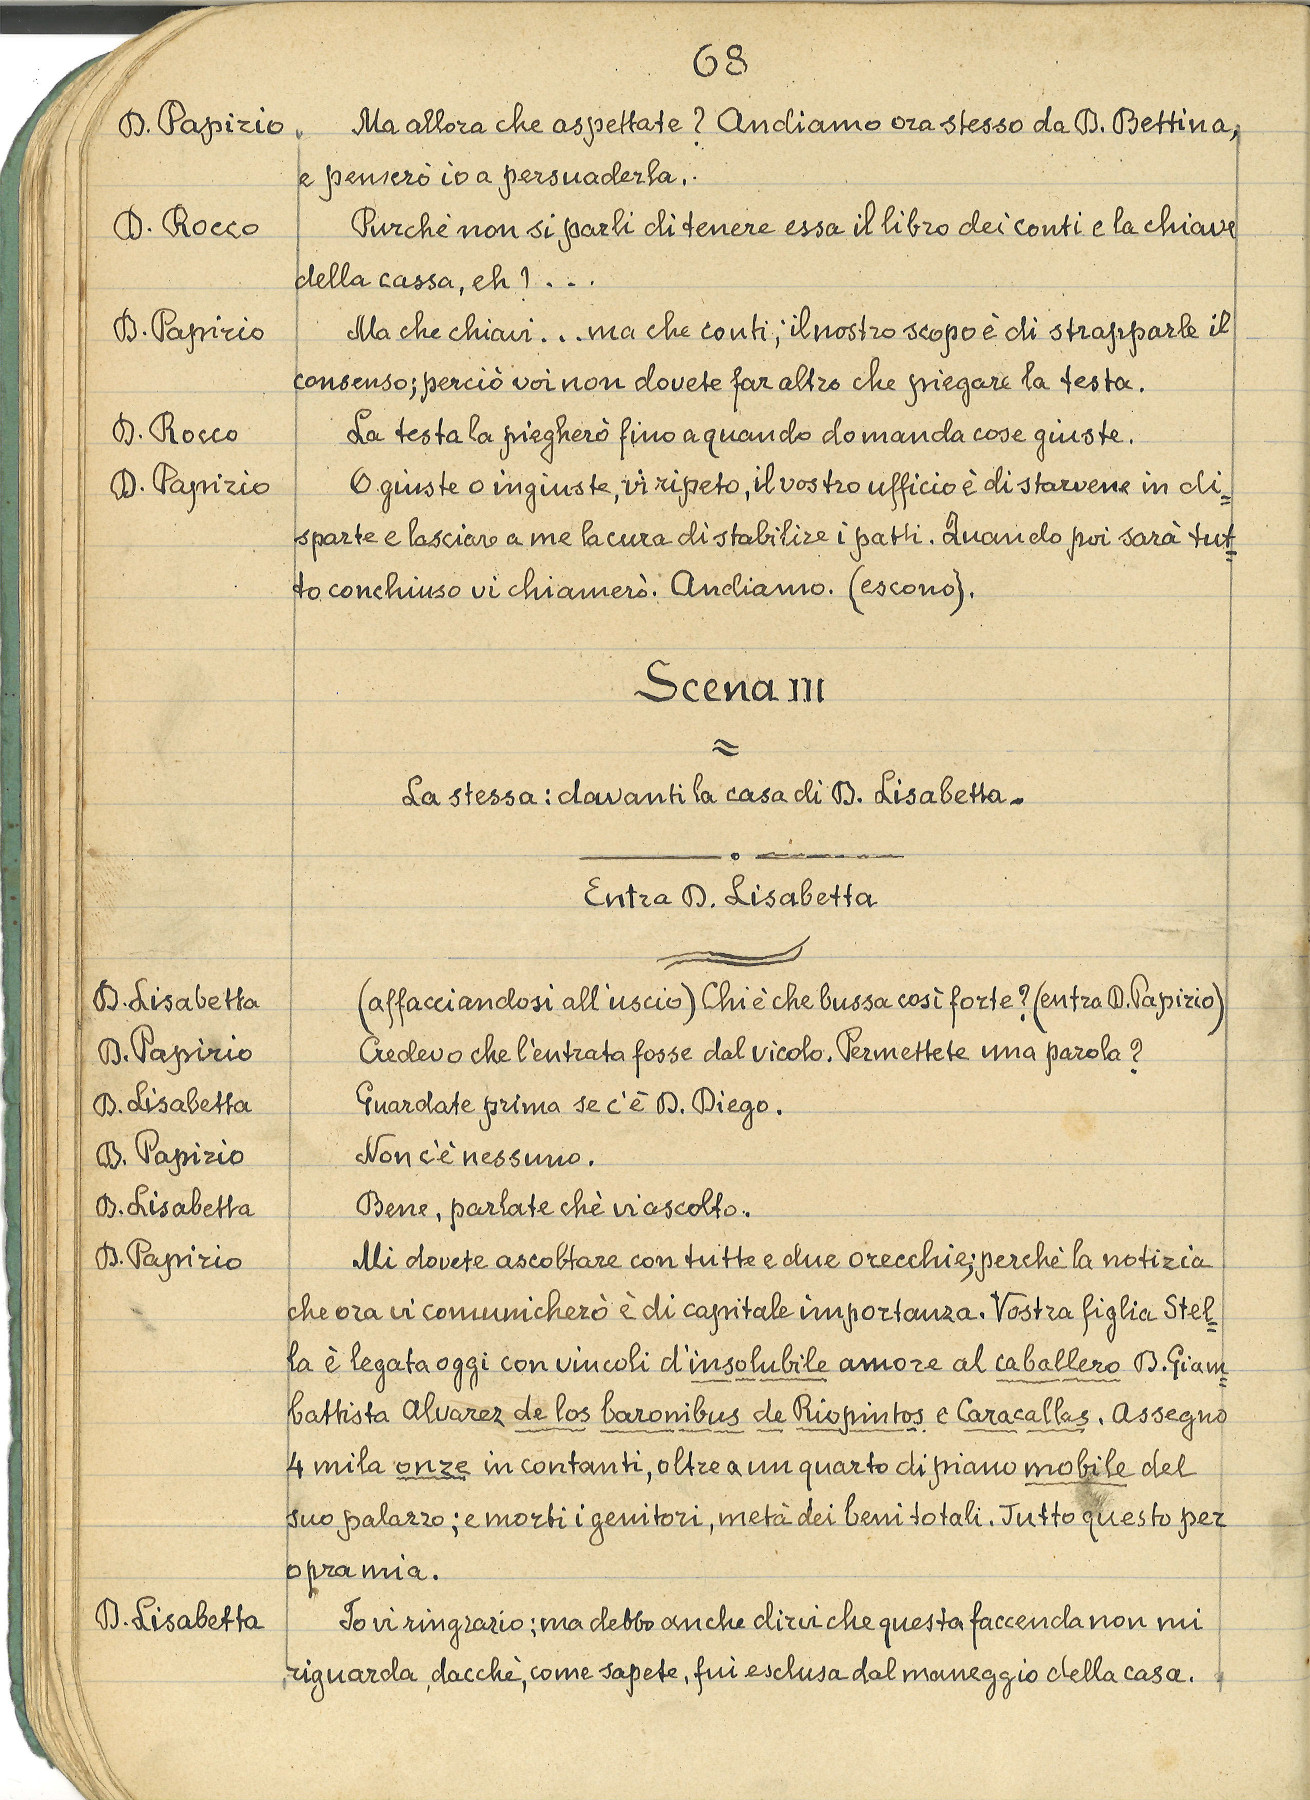 68
D. Papirio. Ma allora che aspettate? Andiamo ora stesso da D. Bettina,
e penserò io a persuaderla..
D. Rocco Purchè non si parli di tenere essa il libro dei conti e la chiave
della cassa, eh?...
D. Papirio Ma che chiavi... ma che conti; il nostro scopo è di strapparle il
consenso; perciò voi non dovete far altro che piegare la testa.
D. Rocco La testa la piegherò fino a quando domanda cose giuste.
D. Papirio O giuste o ingiuste, vi ripeto, il vostro ufficio è di starvene in di=
sparte e lasciare a me la cura di stabilire i patti. Quando poi sarà tut=
to conchiuso vi chiamerò. Andiamo. (escono).
Scena III
La stessa: davanti la casa di D. Lisabetta.
Entra D. Lisabetta
D. Lisabetta (affacciandosi all'uscio) Chi è che bussa così forte? (entra D. Papirio)
D. Papirio Credevo che l'entrata fosse dal vicolo. Permettete una parola?
D. Lisabetta Guardate prima se c'è D. Diego.
D. Papirio Non c'è nessuno.
D. Lisabetta Bene, parlate chè vi ascolto.
D. Papirio Mi dovete ascoltare con tutte e due orecchie; perchè la notizia
che ora vi comunicherò è di capitale importanza. Vostra figlia Stel=
la è legata oggi con vincoli d'insolubile amore al caballero D. Giam=
battista Alvarez de los baronibus de Riopintos e Caracallas. Assegno
4 mila onze in contanti, oltre a un quarto di piano mobile del
suo palazzo; e morti i genitori, metà dei beni totali. Tutto questo per
opra mia.
D. Lisabetta Io vi ringrazio; ma debbo anche dirvi che questa faccenda non mi
riguarda, dacchè, come sapete, fui esclusa dal maneggio della casa.